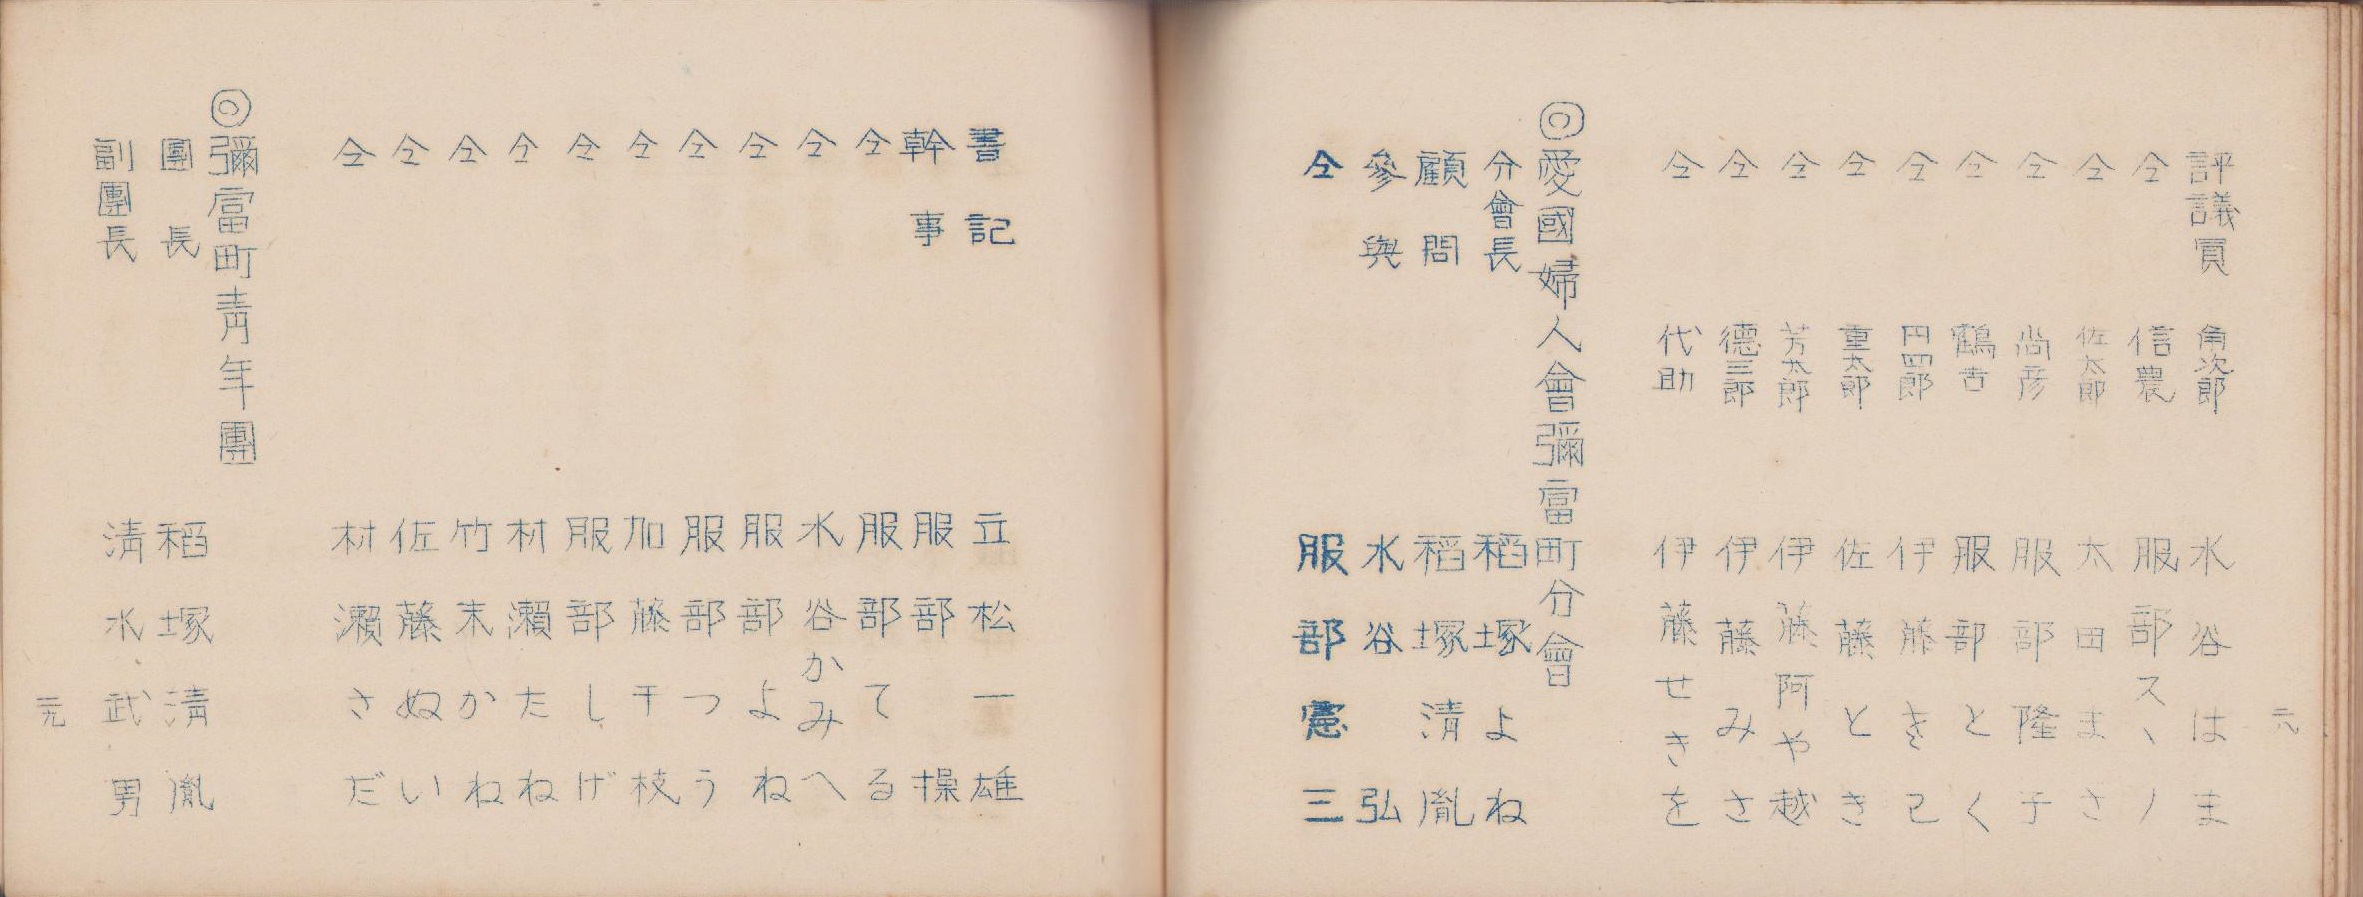 評議員 角次郎 水谷はま
仝 信農 服部スヽノ
仝 佐太郎 太田まさ
仝 尚彦 服部隆子
仝 鶴吉 服部とく
仝 円四郎 伊藤きく
仝 重太郎 佐藤とき
仝 芳太郎 伊藤阿や越
仝 德三郎 伊藤みさ
仝 代助 伊藤せきを
◎愛國婦人會彌富町分會
分會長 稻塚よね
顧問 稻塚清胤
參與 水谷弘
仝 服部憲三
書記 立松一雄
幹事 服部操
仝 服部てる
仝 水谷かみへ
仝 服部よね
仝 服部つう
仝 加藤千枝
仝 服部しげ
仝 村瀨たね
仝 竹末かね
仝 佐藤ぬい
仝 村瀨さだ
◎彌富町靑年團
團長 稻塚清胤
副團長 清水武男